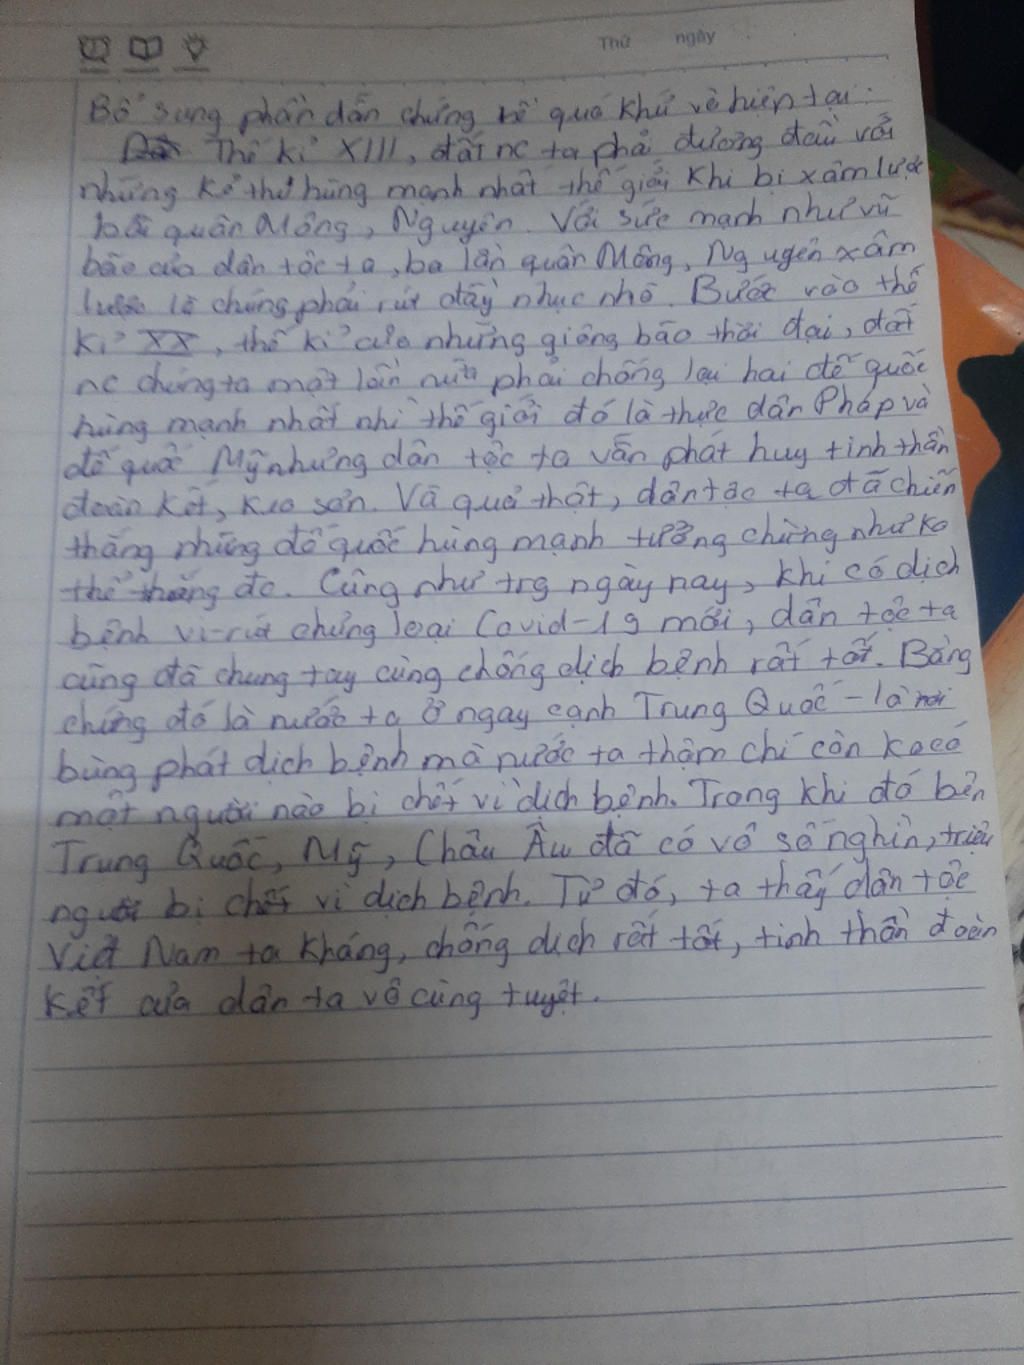 Thứ ngày
Bổ sung phần dẫn chứng về quá khứ và hiện tại:
Thế kỉ XIII, đất nc ta phải đương đầu với
những kẻ thù hùng mạnh nhất thế giới khi bị xâm lược
bởi quân Mông, Nguyên. Với sức mạnh như vũ
bão của dân tộc ta, ba lần quân Mông, Nguyên xâm
lược là chúng phải rút đầy nhục nhã. Bước vào thế
kỉ XX, thế kỉ của những giông bão thời đại, đất
nc chúng ta một lần nữa phải chống lại hai đế quốc
hùng mạnh nhất nhì thế giới đó là thực dân Pháp và
đế quốc Mỹ nhưng dân tộc ta vẫn phát huy tinh thần
đoàn kết, keo sơn. Và quả thật, dân tộc ta đã chiến
thắng những đế quốc hùng mạnh tưởng chừng như ko
thể thắng đc. Cũng như trg ngày nay, khi có dịch
bệnh vi-rút chủng loại Covid-19 mới, dân tộc ta
cũng đã chung tay cùng chống dịch bệnh rất tốt. Bằng
chứng đó là nước ta ở ngay cạnh Trung Quốc - là nơi
bùng phát dịch bệnh mà nước ta thậm chí còn ko có
một người nào bị chết vì dịch bệnh. Trong khi đó bên
Trung Quốc, Mỹ, Châu Âu đã có vô số nghìn, triệu
người bị chết vì dịch bệnh. Từ đó, ta thấy dân tộc
Việt Nam ta kháng, chống dịch rất tốt, tinh thần đoàn
kết của dân ta vô cùng tuyệt.